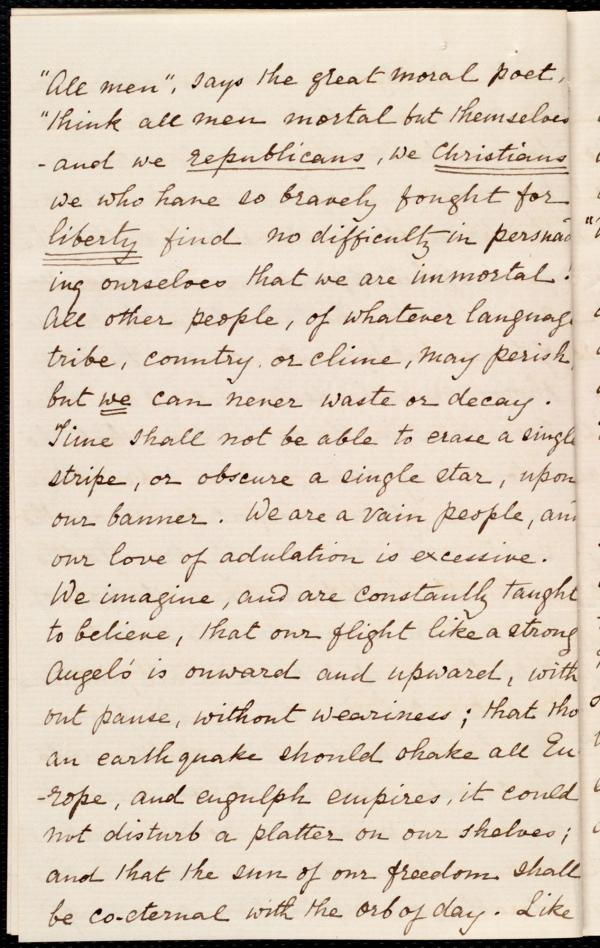 "All men", says the great moral poet,
"think all men mortal but themselves
- and we republicans, we Christians
we who have so bravely fought for
liberty find no difficulty in persuad
ing ourselves that we are immortal!
All other people, of whatever language
tribe, country, or clime, may perish
but we can never waste or decay.
Time shall not be able to erase a single
stripe, or obscure a single star, upon
our banner. We are a vain people, and
our love of adulation is excessive.
We imagine, and are constantly taught
to believe, that our flight like a strong
Angel's is onward and upward, with
out pause, without weariness; that tho
an earthquake should shake all Eu
-rope, and engulph empires, it could
not disturb a platter on our shelves;
and that the sun of our freedom shall
be co-eternal with the orb of day. Like